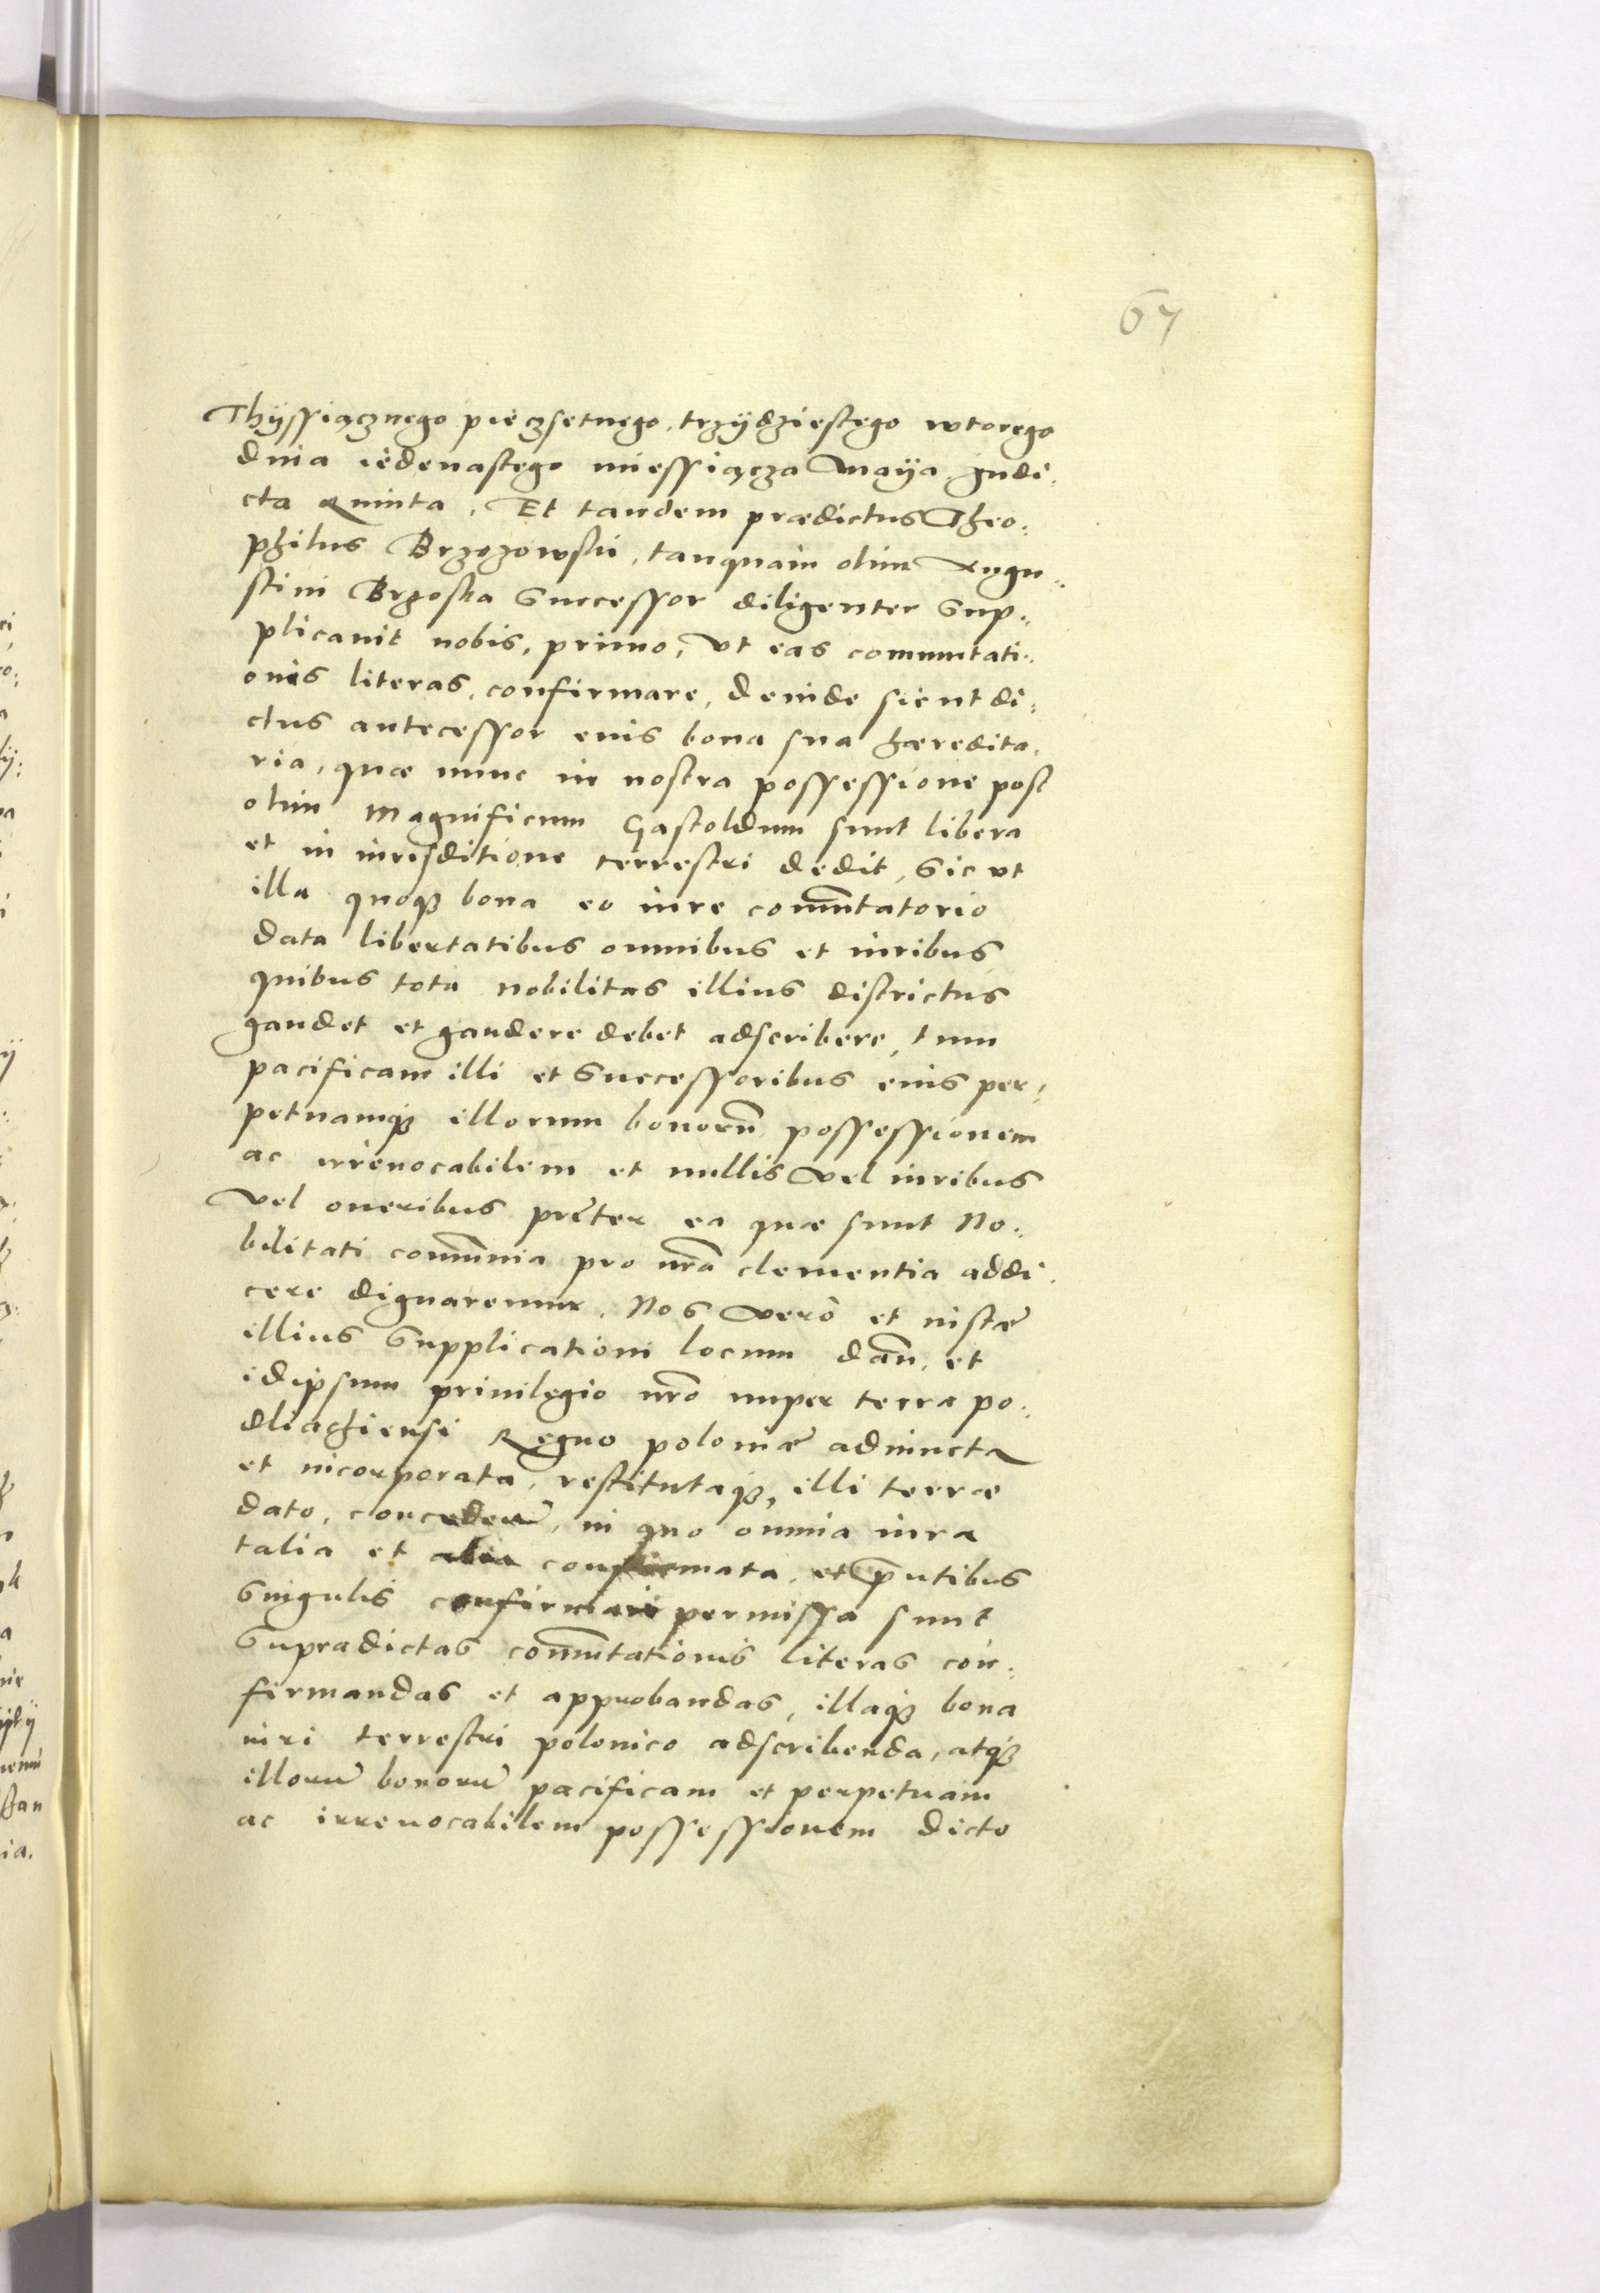 67
Thyssiącznego pięczsetnego, trzydziestego wtorego
dnia iedenastego miessiącza Maya Indi:
cta Quinta, Et tandem prædictus Theo:
philus Brzozowski, tanquam olim Augu:
stini Brzoska Successor diligenter Sup:
plicauit nobis, primo, Vt eas commutati:
onis literas, confirmare, deinde sicut di:
ctus antecessor eius bona sua hæredita:
ria, quæ nunc in nostra possessione post
olim Magnificum Gastoldum sunt libera
et in iurisditione terrestri dedit, Sic vt
illa quoqȝ bona eo iure com̅utatorio
data libertatibus omnibus et iuribus
quibus tota nobilitas illius districtus
gaudet et gaudere debet adscribere, tum
pacificam illi et Successoribus eius per:
petuamqȝ illorum bonorū possessionem
ac irreuocabilem et nullis Vel iuribus
Vel oneribus præter ea quæ sunt No:
bilitati com̅unia pro nr̄a clementia addi:
cere dignaremur. Nos Vero et iustæ
illius Supplicationi locum dan̄, et
idipsum priuilegio nr̄o nuper terræ po:
dlachiensi Regno poloniæ adiuncta
et incorporata, restitutaqȝ, illi terræ
dato, conceden̄, in quo omnia iura
talia et alia confirmata, et p̄ntibus
Singulis confirmari permissa sunt
Supradictas com̅utationis literas con:
firmandas et approbandas, illaqȝ bona
iuri terrestri polonico adscribenda, atqȝ
illorū bonorū pacificam et perpetuam
ac irreuocabilem possessionem dicto